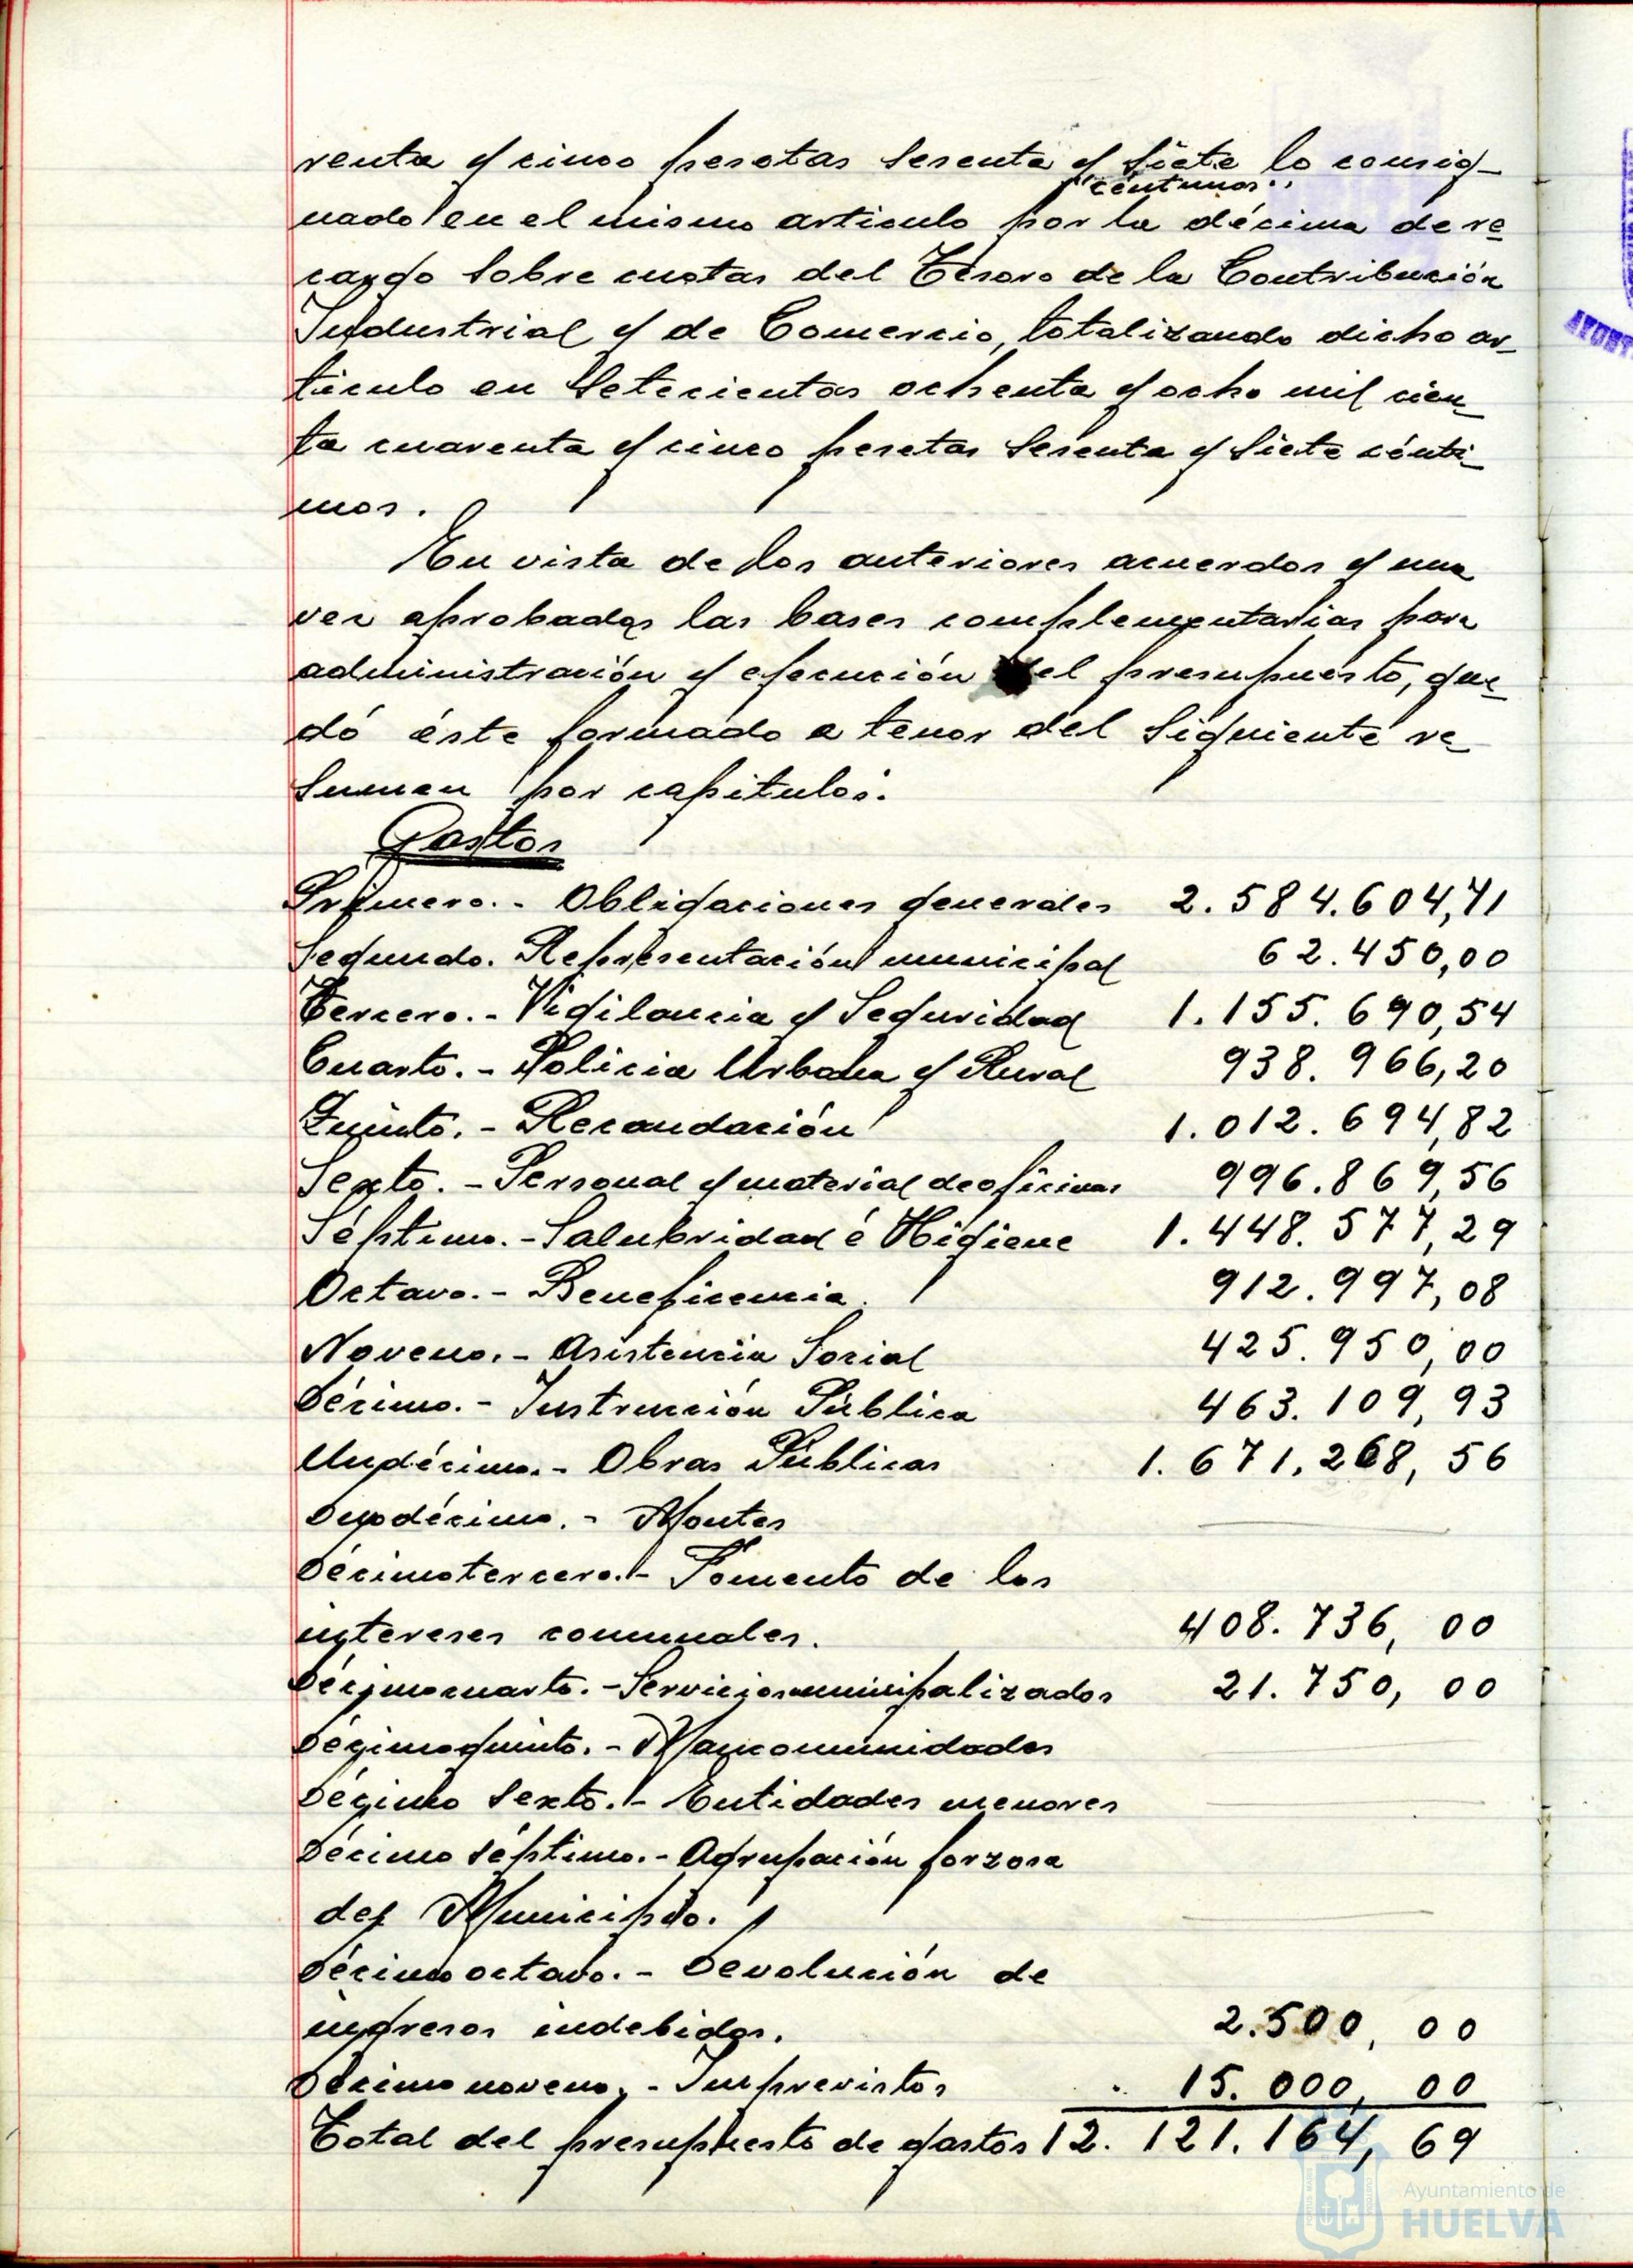 renta y cinco pesetas sesenta y siete lo consig-
"céntimos"
nado en el mismo articulo por la décima de re-
cargo sobre cuotas del Tesoro de la Contribución
Industrial y de Comercio, totalizando dicho ar-
ticulo en setecientas ochenta y ocho mil cien-
ta cuarenta y cinco pesetas sesenta y siete cénti-
mos.
En vista de los anteriores acuerdos y una
vez aprobadas las bases complementarias para
administración y ejecución del presupuesto, que-
dó éste formado a tenor del siguiente re-
sumen por capitulos:
Gastos
Primero.- Obligaciones generales 2.584.604,71
Segundo. Representación municipal 62.450,00
Tercero.- Vigilancia y Seguridad 1.155.690,54
Cuarto.- Policia Urbana y Rural 938.966,20
Quinto.- Recaudación 1.012.694,82
Sexto.- Personal y material de oficinas 996.869,56
Séptimo.- Salubridad é Higiene 1.448.577,29
Octavo.- Beneficencia. 912.997,08
Noveno.- Asistencia Social 425.950,00
Décimo.- Instrucción Pública 463.109,93
Undécimo.- Obras Públicas 1.671,268,56
Duodécimo.- Montes
Décimotercero.- Fomento de los
intereses comunales. 408.736,00
Décimocuarto.- Servicios municipalizados 21.750,00
Décimoquinto.- Mancomunidades
Décimo sexto.- Entidades menores
Décimo séptimo.- Agrupación forzosa
del Municipio.
Décimo octavo.- Devolución de
ingresos indebidos. 2.500,00
Décimo noveno.- Imprevistos 15.000,00
Total del presupuesto de gastos 12.121.164,69
Ayuntamiento de
HUELVA